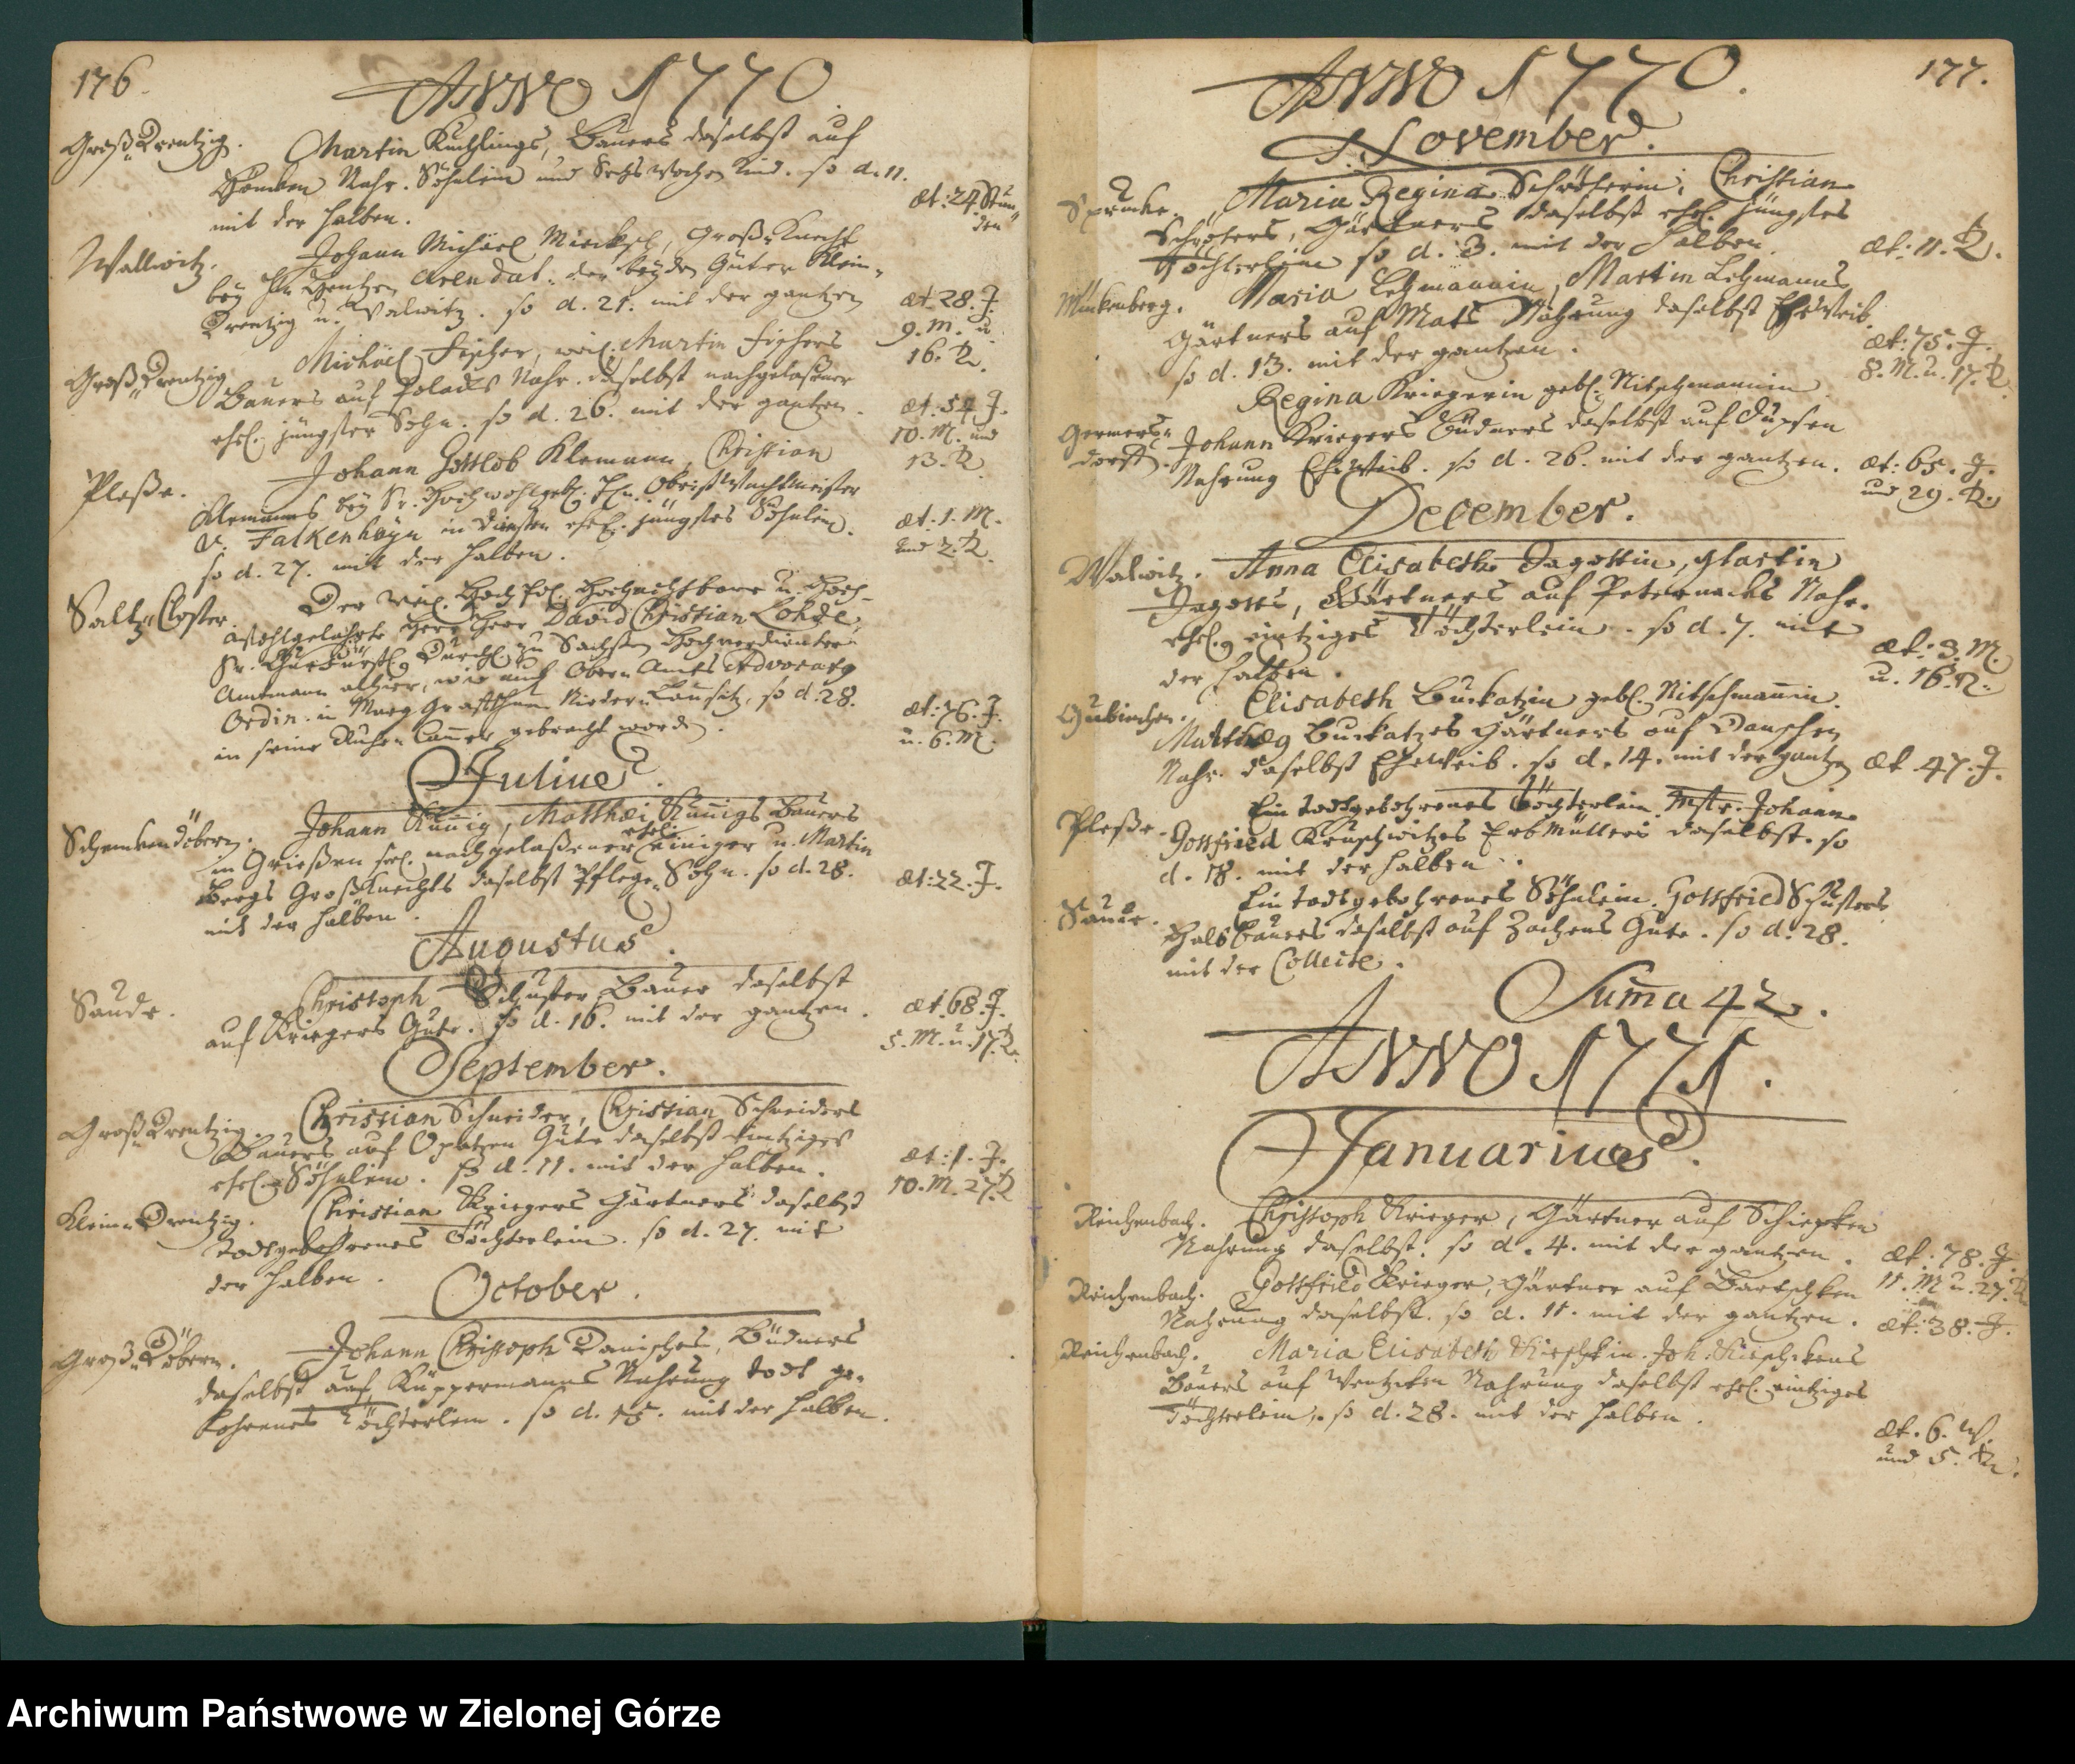 176.
ANNO 1770
Groß Drentzig. Martin Kuchlings, Bauers daselbst auf
Nahr. Söhnlein und Sechs Wochen Kind. so d. 11.
mit der halben.
æt: 24 Stun
den
Wallwitz. Johann Michael, Groß Knecht
bey H. Arendat. der beyden Güter Klein
Drentzig u. Walwitz. so d. 21. mit der gantzen
æt. 28. J.
9. M. u.
16. T.
Groß Drentzig Michael Fischer, weil. Martin Fischers
Bauers auf Nahr. daselbst nachgelaßener
ehel. jüngster Sohn. so d. 26. mit der gantzen.
æt. 54 J.
10. M. und
13. T.
Pleße. Johann Gottlob Klemann, Christian
Klemanns bey Sr. Hochwohlgeb. H. Obrist Wachtmeister
v. Falkenhayn in Diensten ehel. jüngstes Söhnlein.
so d. 27. mit der halben.
æt. 1. M.
und 2. T.
Saltz Closter. Der weil. u. Hoch-
Wohlgelahrte Herr Herr David Christian Lohde,
Sr. Churfürstl. Durchl. zu Sachsen Hochverdienter
Amtmann allhier, wie auch Ober Amts Advocatg
Ordin. in Marg Grafthum Nieder Lausitz, so d. 28.
in seine Ruhe Cammer gebracht worden.
æt: 76. J.
u. 6. M.
Julius.
Schenkendöbern. Johann Kunnig, Matthæi Kunnigs Bauers
in Grießen sel. nachgelaßener ehel. einiger u. Martin
Bergs Großknechts daselbst Pflege Sohn. so d. 28.
mit der halben.
æt: 22. J.
Augustus.
Saude. Christoph Schuster, Bauer daselbst
auf Kriegers Gute. so d. 16. mit der gantzen.
æt. 68. J.
5. M. u. 17. T.
September.
Groß Drentzig. Christian Schneider, Christian Schneiders
Bauers auf Opatzen Gute daselbst eintziges
ehel. Söhnlein. so d. 11. mit der halben.
æt: 1. J.
10. M. 27. T
Klein Drentzig. Christian Kriegers Gärtners daselbst
todtgebohrenes Töchterlein. so d. 27. mit
der halben.
October.
Groß Döbern. Johann Christoph Danisches, Büdners
daselbst auf Küppermanns Nahrung todt ge-
bohrenes Töchterlein. so d. 15. mit der halben.
177.
ANNO 1770.
November.
Sprucke. Maria Regina Schröterin, Christian
Schröters, Gärtners daselbst ehel. jüngstes
Töchterlein so d. 3. mit der halben.
æt: 11. T.
Mückenberg. Maria Lehmannin, Martin Lehmanns
Gärtners auf Mats Nahrung daselbst Ehe Weib.
so d. 13. mit der gantzen.
æt: 75. J.
8. M. u. 17. T.
Germers
dorff. Regina Kriegerin gebl. Nitschmannin
Johann Kriegers Büdners daselbst auf Dupsen
Nahrung Ehe Weib. so d. 26. mit der gantzen.
æt: 65. J.
und 29. T.
December.
Walwitz. Anna Elisabeth Jagottin, Martin
Jagotts, Gärtners auf Peternacks Nahr.
ehel. eintziges Töchterlein. so d. 7. mit
der halben.
æt: 3. M.
u. 16. T.
Gubinchen. Elisabeth Burkatzin gebl. Nitschmannin.
Matthæg Burkatzes Gärtners auf
Nahr. daselbst Ehe Weib. so d. 14. mit der gantzen
æt. 47. J.
Pleße. Ein todtgebohrenes Töchterlein Mstr. Johann
Gottfried Erb Müllers daselbst. so
d. 18. mit der halben.
Saude. Ein todtgebohrenes Söhnlein. Gottfried Schusters
Halb Bauers daselbst auf Zachens Gute. so d. 28.
mit der Collecte.
Suma 42.
ANNO 1771.
Januarius.
Reichenbach. Christoph Krieger, Gärtner auf Schiepken
Nahrung daselbst. so d. 4. mit der gantzen.
æt. 78. J.
11. M u. 27. T
Reichenbach. Gottfried Krieger, Gärtner auf Bartschken
Nahrung daselbst. so d. 11. mit der gantzen.
æt: 38. J.
Reichenbach. Maria Elisabeth Joh.
Bauers auf Nahrung daselbst ehel. eintziges
Töchterlein. so d. 28. mit der halben.
æt. 6. W.
und 5. T.
Archiwum Państwowe w Zielonej Górze